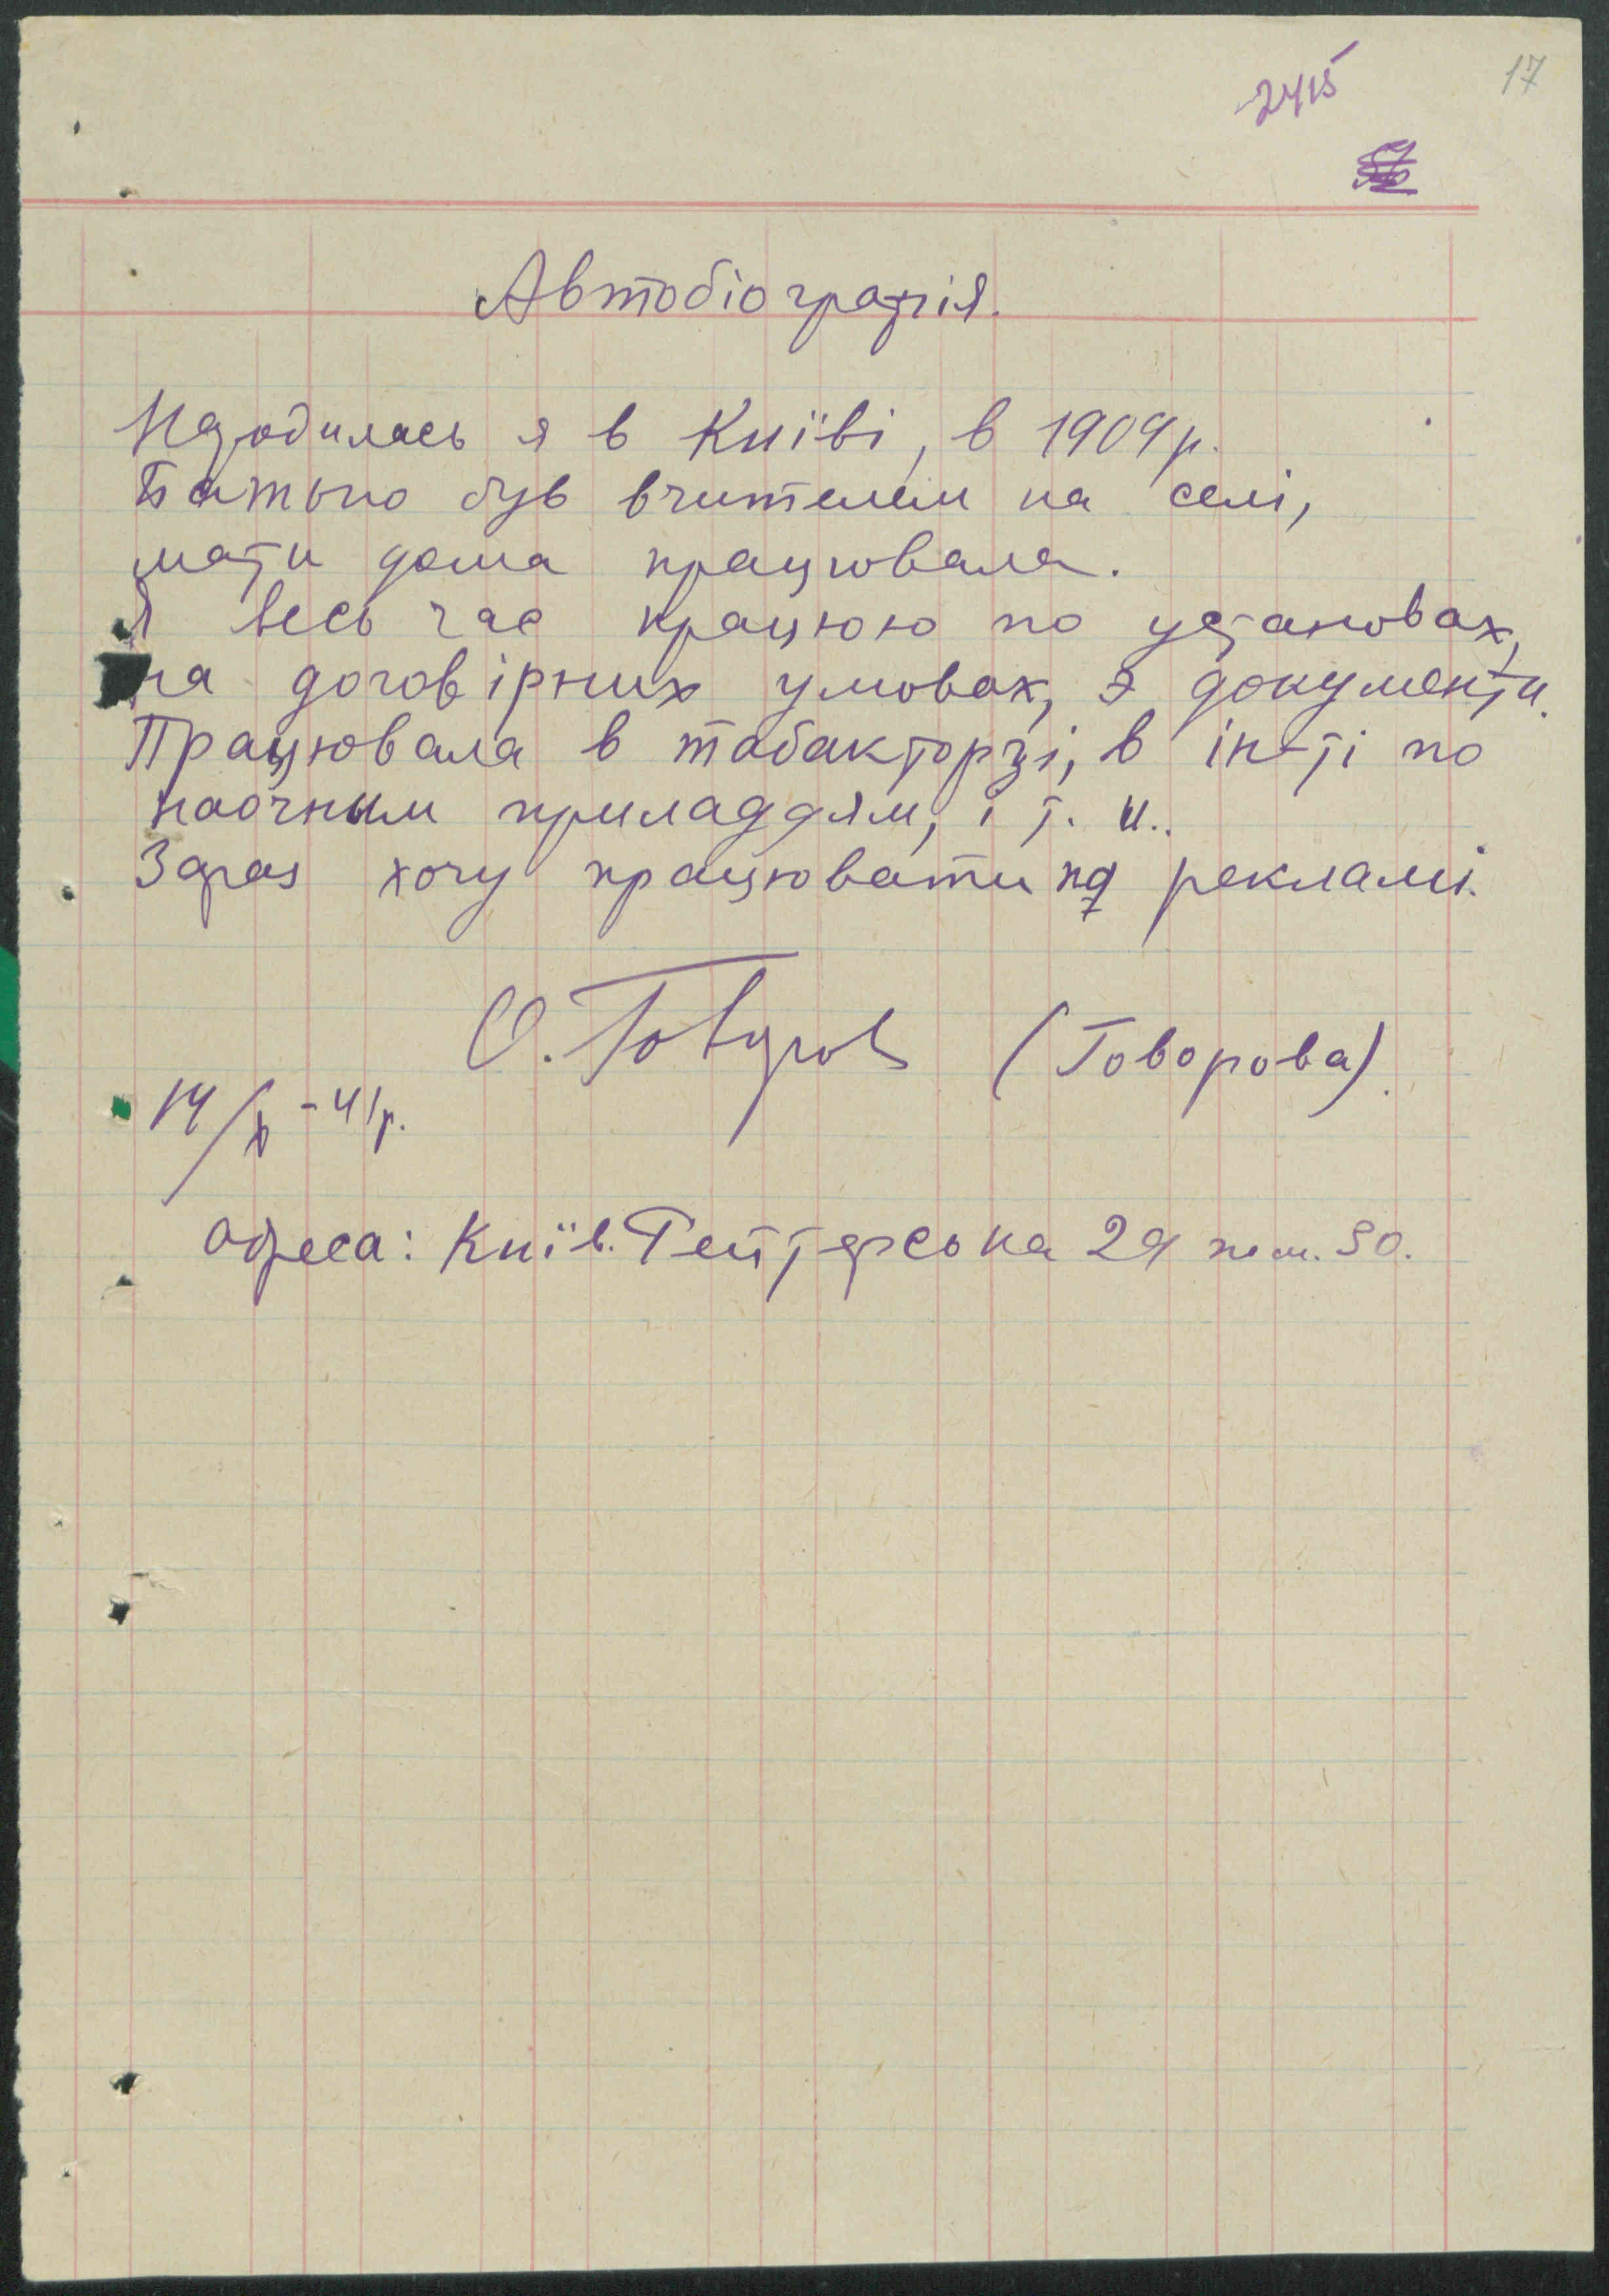 2415
17
Автобіографія.
Народилась я в Київі, в 1909 р.
Батько був вчителем на селі,
мати дома працювала.
Я весь час працюю по установах,
на договірних умовах, э документи.
Працювала в табакторзі, в ін-ті по
наочним приладдям, і т. и..
Зараз хочу працювати по рекламі.
О. Говоров (Говорова).
14/X -41р.
Адреса: Київ. Рейтерська 29 пом. 30.